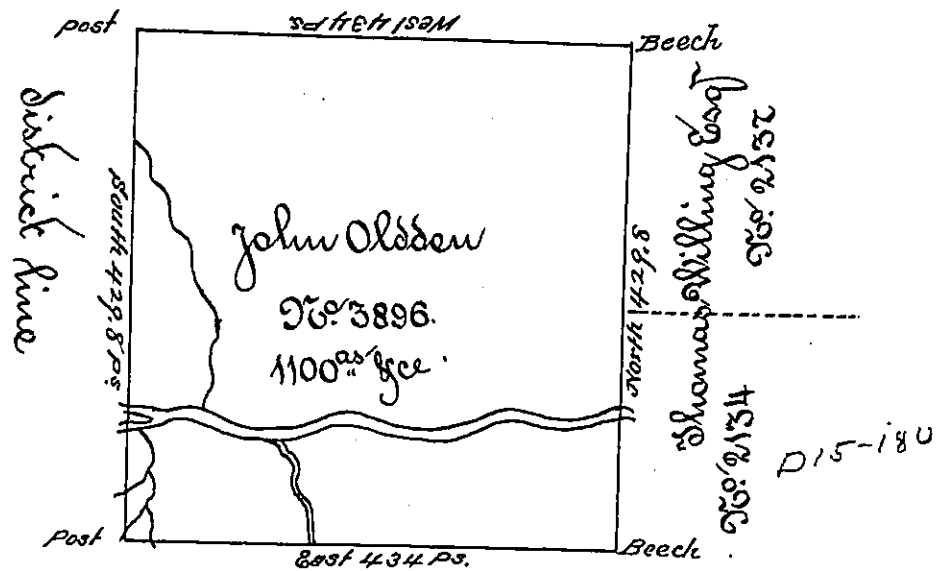 West 434 Ps
Post
Beech
District line
South 429.8 Ps.
John Oldden
No. 3896.
1100 as. &ce.
North 429.8
Thomas Willing Esqr
No. 2137
No. 2134
D15-180
Post
East 434 Ps.
Beech